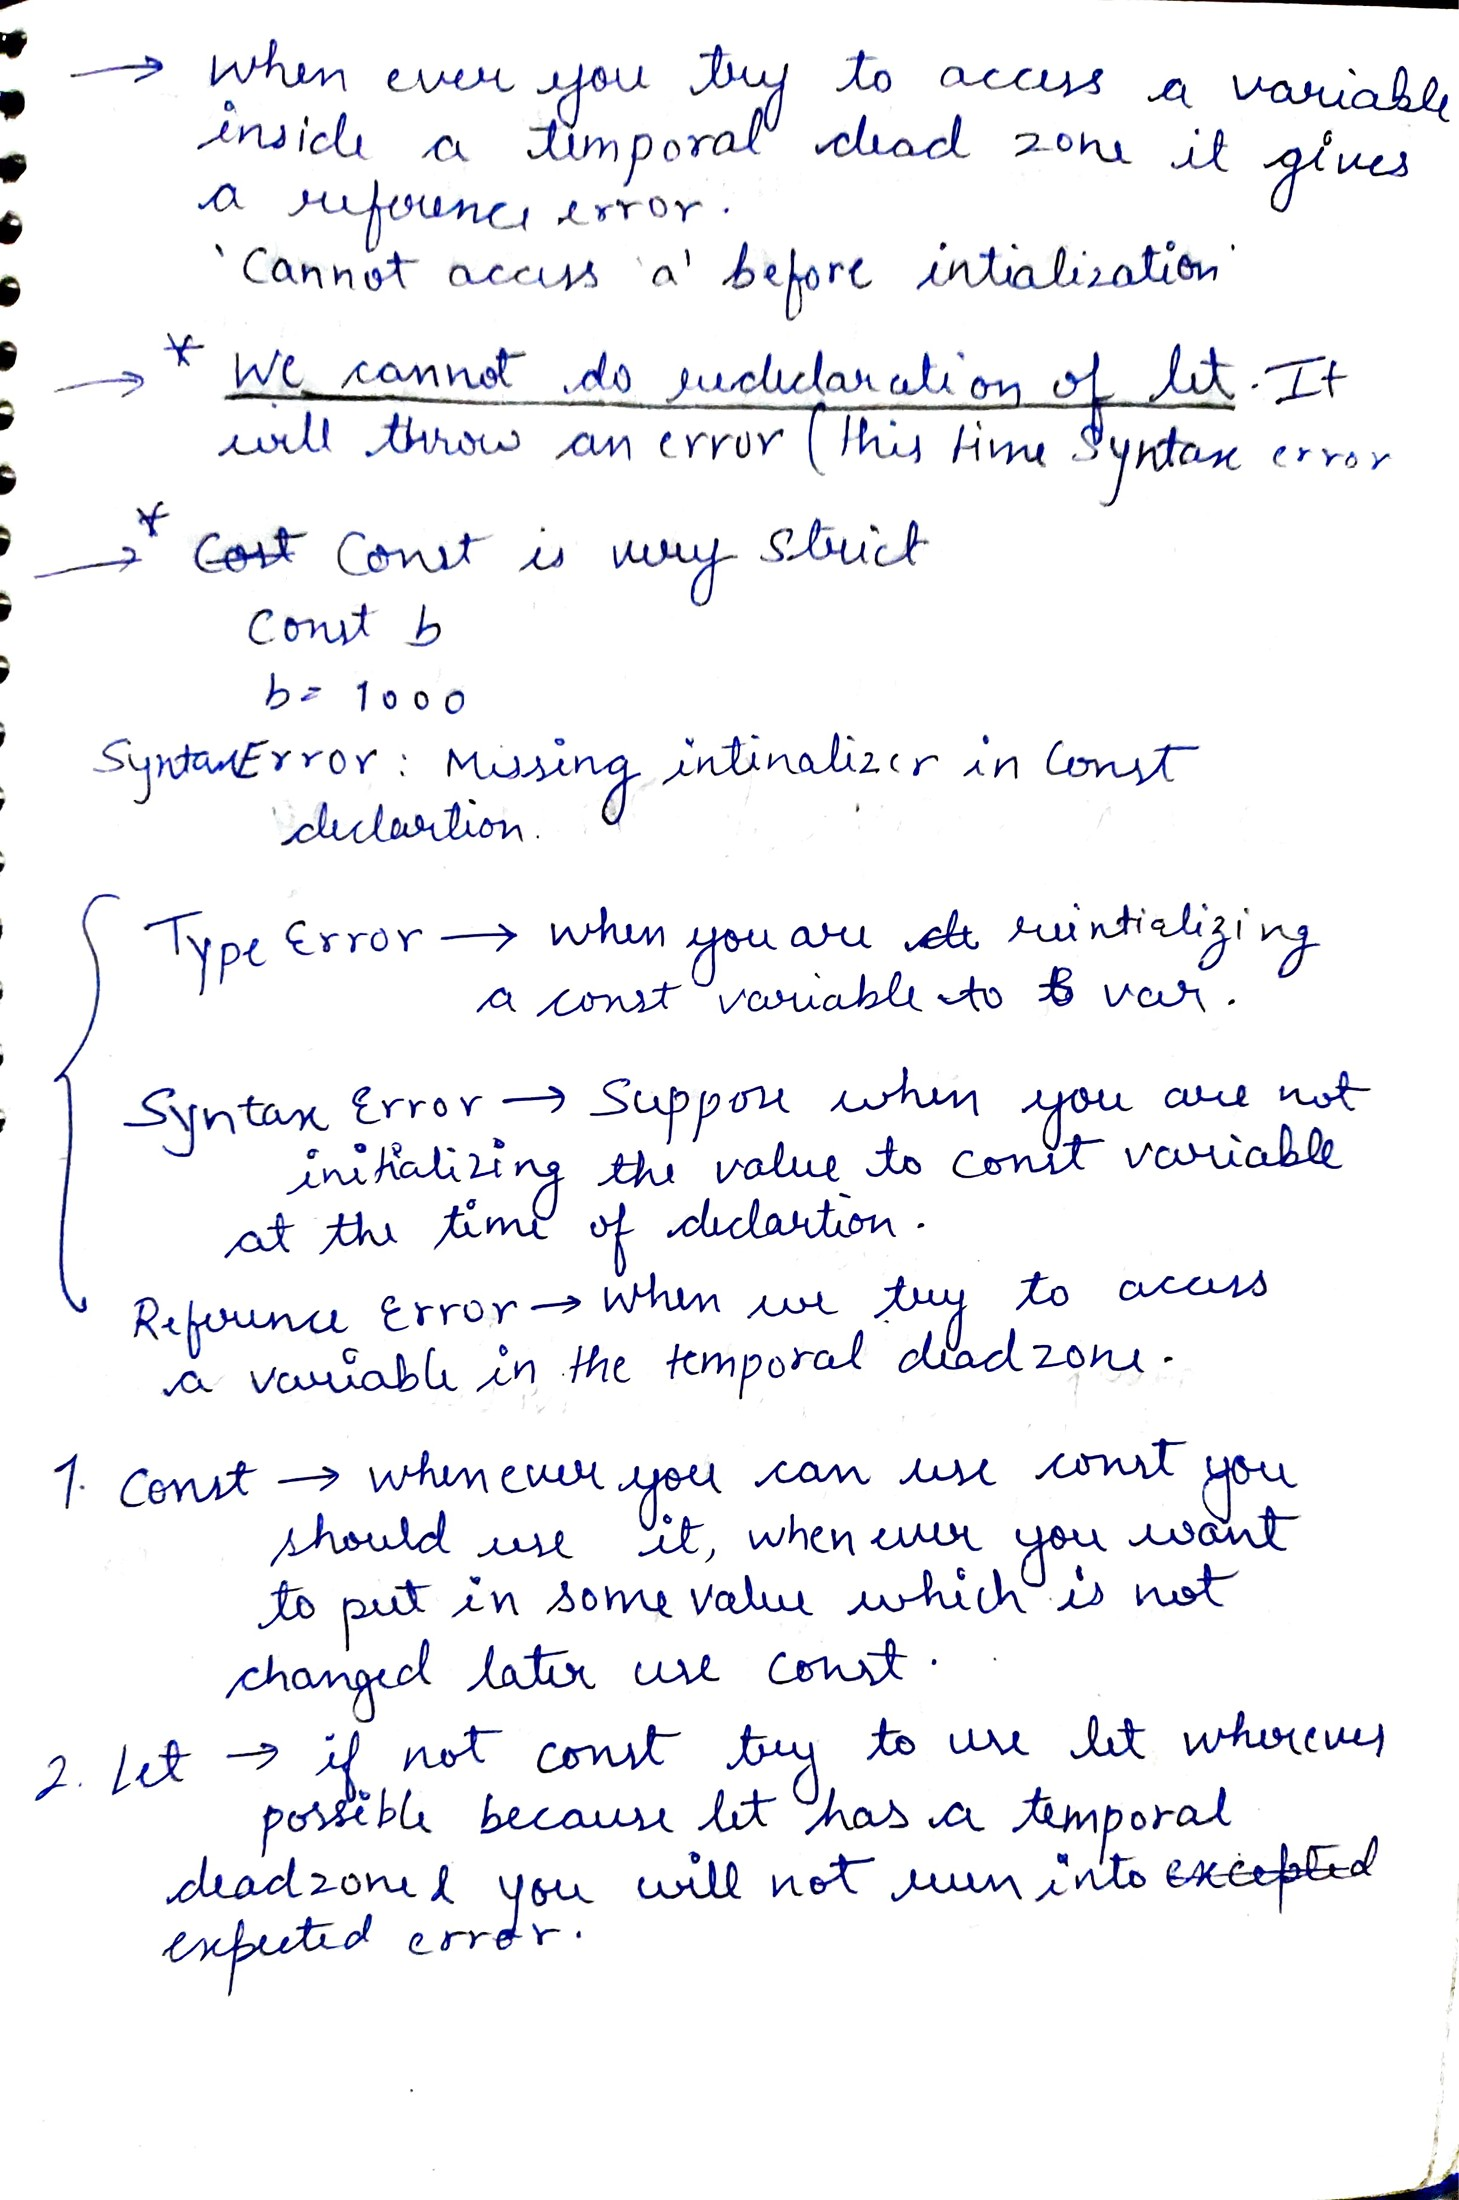 → when ever you try to access a variable
inside a temporal dead zone it gives
a reference error.
'Cannot access 'a' before intialization'
→ * We cannot do redeclaration of let. It
will throw an error (this time Syntax error
→ * Cost Const is very strict
Const b
b = 1000
SyntaxError : Missing intinalizer in Const
declartion.
Type Error → when you are reintializing
a const variable to var.
Syntax Error → Suppose when you are not
initializing the value to const variable
at the time of declartion.
Reference Error → when we try to access
a variable in the temporal dead zone.
1. Const → whenever you can use const you
should use it, when ever you want
to put in some value which is not
changed later use const.
2. Let → if not const try to use let wherever
possible because let has a temporal
deadzone & you will not run into excepted
expected error.